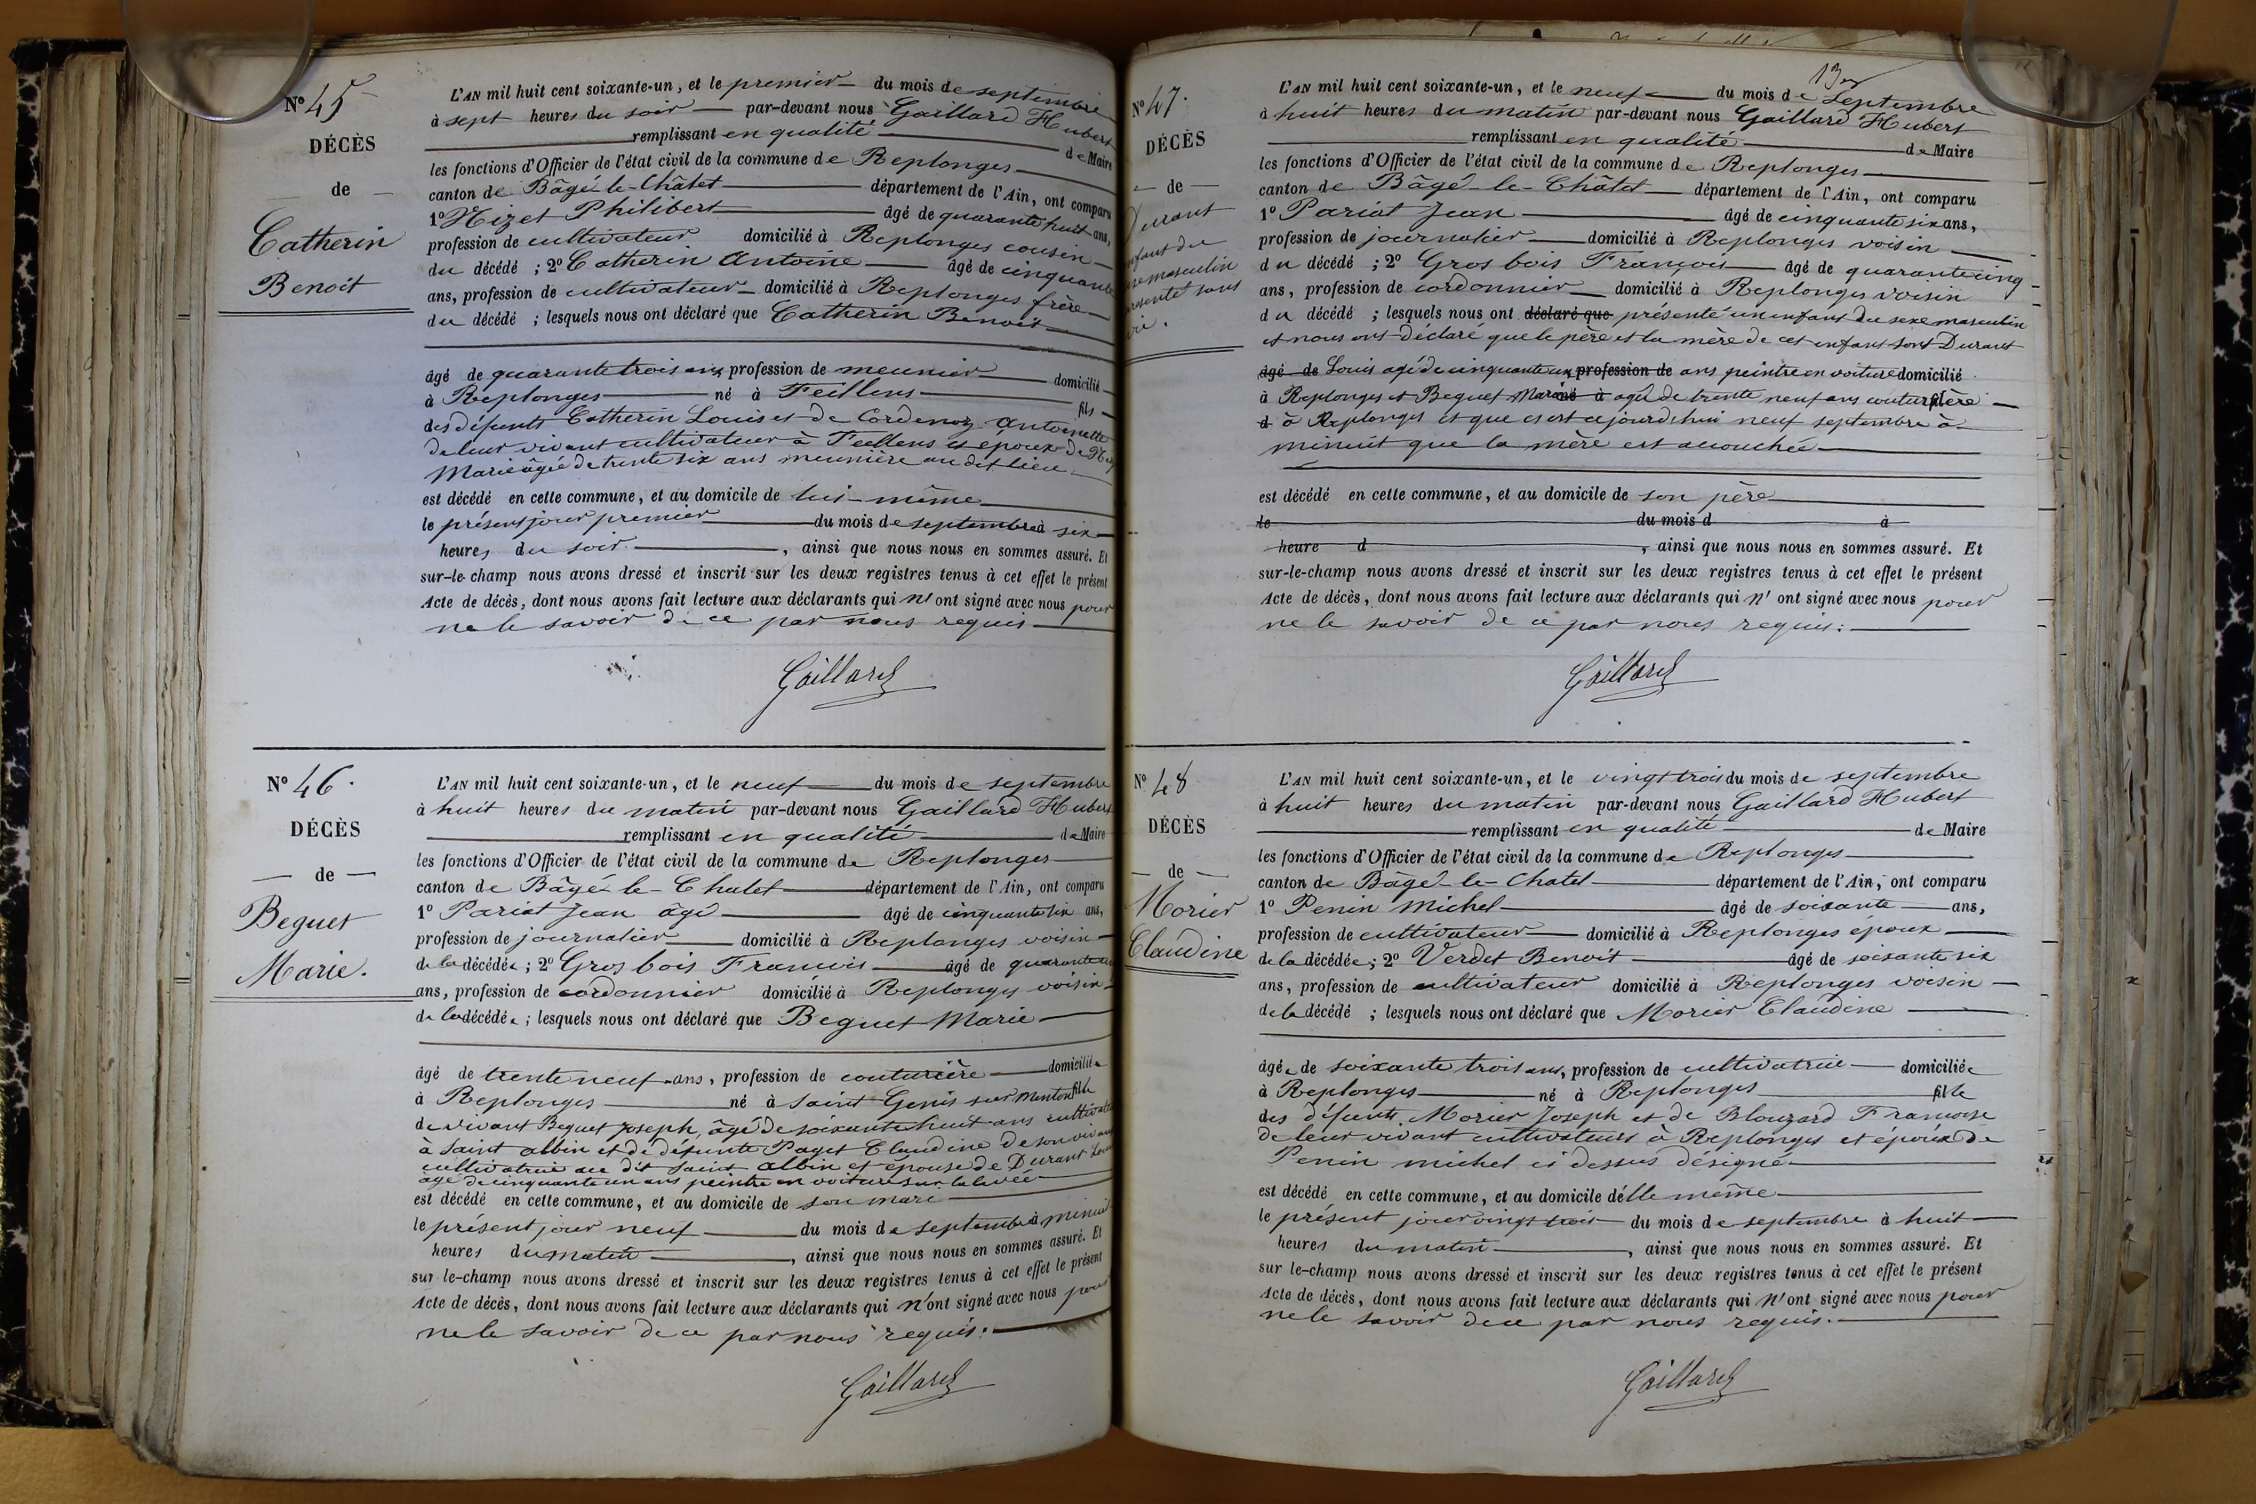 N° 45
DÉCÈS
de
Catherin
Benoît
L'AN mil huit cent soixante-un, et le premier du mois de septembre
à sept heures du soir par-devant nous Gaillard Hubert
remplissant en qualité de Maire
les fonctions d'Officier de l'état civil de la commune de Replonges
canton de Bâgé-le-Châtel département de l'Ain, ont comparu
1° Nizet Philibert âgé de quarante huit ans,
profession de cultivateur domicilié à Replonges cousin
du décédé ; 2° Catherin Antoine âgé de cinquante
ans, profession de cultivateur domicilié à Replonges frère
du décédé ; lesquels nous ont déclaré que Catherin Benoît
âgé de quarante trois ans, profession de meunier domicilié
à Replonges né à Feillens fils
des défunts Catherin Louis et de Cordenoz Antoinette
de leur vivant cultivateur à Feillens et époux de
Marie âgée de trente six ans meunière au dit lieu
est décédé en cette commune, et au domicile de lui-même
le présent jour premier du mois de septembre à six
heures du soir, ainsi que nous nous en sommes assuré. Et
sur-le-champ nous avons dressé et inscrit sur les deux registres tenus à cet effet le présent
Acte de décès, dont nous avons fait lecture aux déclarants qui n'ont signé avec nous pour
ne le savoir de ce par nous requis
Gaillard
N° 46.
DÉCÈS
de
Beguet
Marie.
L'AN mil huit cent soixante-un, et le neuf du mois de septembre
à huit heures du matin par-devant nous Gaillard Hubert
remplissant en qualité de Maire
les fonctions d'Officier de l'état civil de la commune de Replonges
canton de Bâgé-le-Chatel département de l'Ain, ont comparu
1° Pariat Jean âgé âgé de cinquante six ans,
profession de journalier domicilié à Replonges voisin
de la décédée ; 2° Gros bois Francois âgé de quarante
ans, profession de cordonnier domicilié à Replonges voisin
de la décédée ; lesquels nous ont déclaré que Beguet Marie
âgé de trente neuf ans, profession de couturière domiciliée
à Replonges né à Saint Genis sur Menton fille
de vivant Beguet Joseph, âgé de soixante huit ans cultivateur
à Saint albin et de défunte Paget Claudine de son vivant
cultivatrice au dit Saint albin et épouse de Durant Louis
âgé de cinquante un ans peintre en voiture sur la levée
est décédé en cette commune, et au domicile de son mari
le présent jour neuf du mois de septembre à minuit
heures du matin, ainsi que nous nous en sommes assuré. Et
sur le-champ nous avons dressé et inscrit sur les deux registres tenus à cet effet le présent
Acte de décès, dont nous avons fait lecture aux déclarants qui n'ont signé avec nous pour
ne le savoir de ce par nous requis.
Gaillard
13
N° 47.
DÉCÈS
de
Durant
enfant du
sexe masculin
présenté sans
vie.
L'AN mil huit cent soixante-un, et le neuf du mois de Septembre
à huit heures du matin par-devant nous Gaillard Hubert
remplissant en qualité de Maire
les fonctions d'Officier de l'état civil de la commune de Replonges
canton de Bâgé-le-Châtel département de l'Ain, ont comparu
1° Pariat Jean âgé de cinquante six ans,
profession de journalier domicilié à Replonges voisin
du décédé ; 2° Gros bois François âgé de quarante cinq
ans, profession de cordonnier domicilié à Replonges voisin
du décédé ; lesquels nous ont déclaré que présenté un enfant du sexe masculin
et nous ont déclaré que le père et la mère de cet enfant sont Durant
âgé de Louis agé de cinquante un profession de ans peintre en voiture domicilié
à Replonges et Beguet Marie né à agée de trente neuf ans couturière
à Replonges et que cest cejourdehui neuf septembre à
minuit que la mère est accouchée
est décédé en cette commune, et au domicile de son père
le du mois d à
heure d, ainsi que nous nous en sommes assuré. Et
sur-le-champ nous avons dressé et inscrit sur les deux registres tenus à cet effet le présent
Acte de décès, dont nous avons fait lecture aux déclarants qui n'ont signé avec nous pour
ne le savoir de ce par nous requis.
Gaillard
N° 48
DÉCÈS
de
Morier
Claudine
L'AN mil huit cent soixante-un, et le vingt trois du mois de septembre
à huit heures du matin par-devant nous Gaillard Hubert
remplissant en qualité de Maire
les fonctions d'Officier de l'état civil de la commune de Replonges
canton de Bâgé-le-Chatel département de l'Ain, ont comparu
1° Penin Michel âgé de soixante ans,
profession de cultivateur domicilié à Replonges époux
de la décédée ; 2° Verdet Benoit âgé de soixante six
ans, profession de cultivateur domicilié à Replonges voisin
de la décédé ; lesquels nous ont déclaré que Morier Claudine
âgée de soixante trois ans, profession de cultivatrice domiciliée
à Replonges né à Replonges fille
des défunts Morier Joseph et de Blouzard Francoise
de leur vivant cultivateurs à Replonges et épouse de
Penin michel ci dessus désigné
est décédé en cette commune, et au domicile d'elle même
le présent jour vingt trois du mois de septembre à huit
heures du matin, ainsi que nous nous en sommes assuré. Et
sur le-champ nous avons dressé et inscrit sur les deux registres tenus à cet effet le présent
Acte de décès, dont nous avons fait lecture aux déclarants qui n'ont signé avec nous pour
ne le savoir de ce par nous requis.
Gaillard